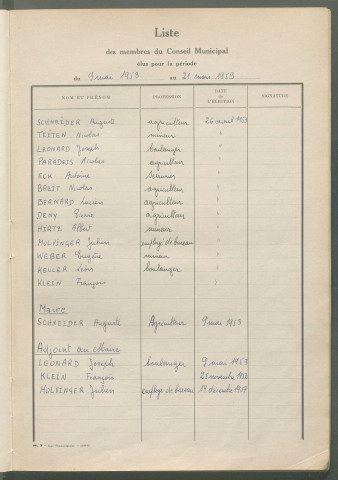 Liste
des membres du Conseil Municipal
élus pour la période
du 9 mai 1953 au 21 mars 1959
NOM ET PRÉNOM PROFESSION DATE de L'ÉLECTION SIGNATURE
SCHNEIDER Auguste agriculteur 26 avril 1953
TRITAN Nicolas mineur "
LEONARD Joseph boulanger "
PARADEIS Nicolas agriculteur "
Antoine "
Nicolas agriculteur "
BERNARD Lucien agriculteur "
DENY Pierre agriculteur "
HIRTZ Albert mineur "
MOLVINGER Julien employé de bureau "
WEBER Eugène mineur "
KELLER Léon boulanger "
KLEIN François "
Maire
SCHNEIDER Auguste Agriculteur 9 mai 1953
Adjoint au Maire
LEONARD Joseph boulanger 9 mai 1953
KLEIN François 25 novembre
MOLVINGER Julien employé de bureau 14 décembre 1957